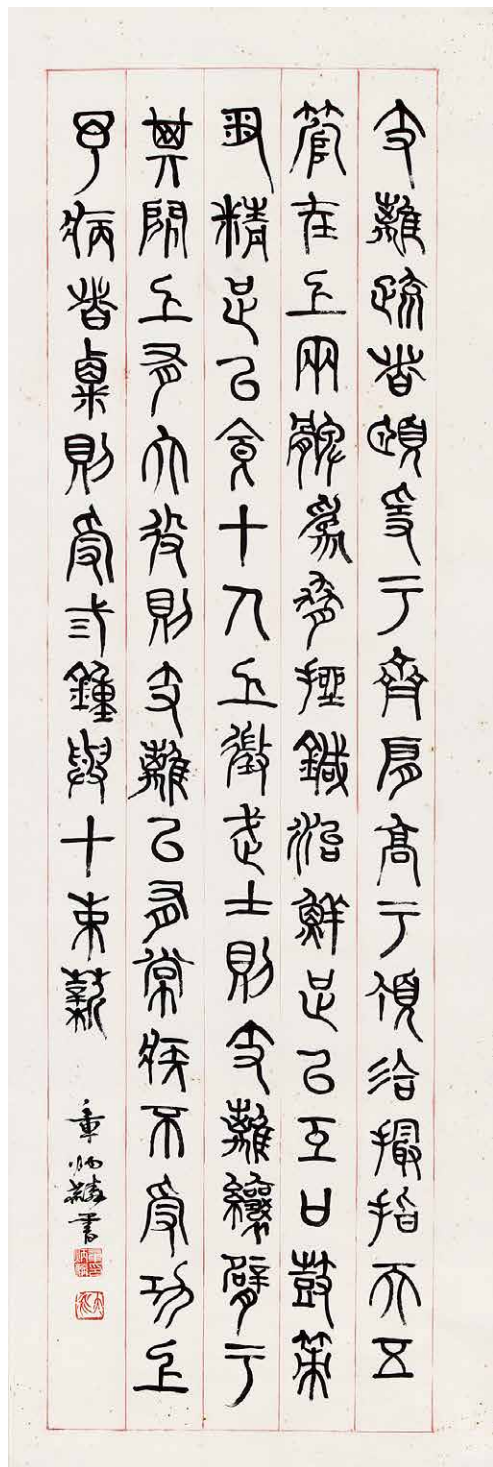 支離疏者頤㥯于齊肩高于頂會撮指天五
管在上兩髀為脅挫鍼治鮮足以互口鼓策
播精足以食十人上徵武士則支離攘臂于
其間上有大役則支離以有常疾不受功上
予病者粟則受弎鍾與十束薪
章炳麟書